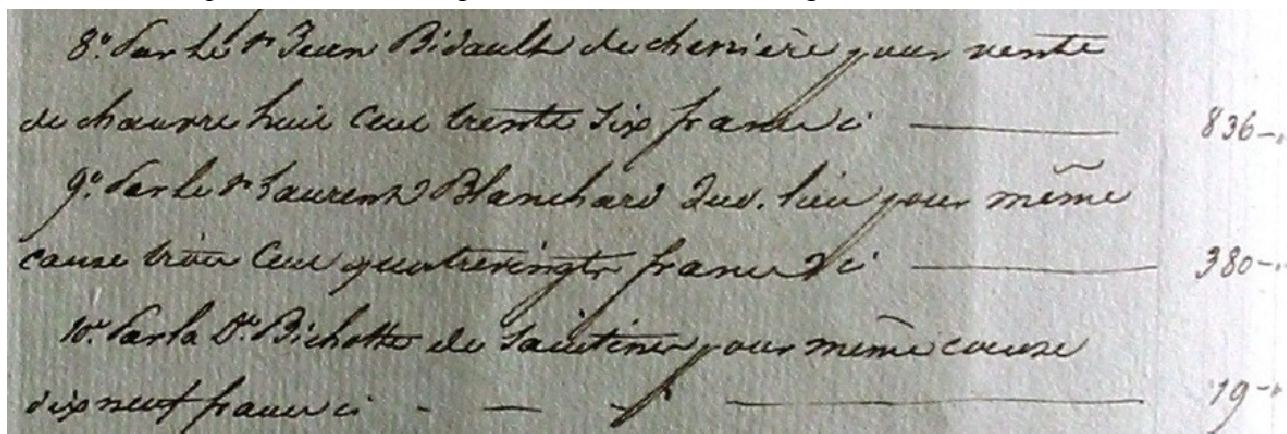 8° Par le Sr Jean Bidault de chenière pour vente
de chanvre huit cent trente six francs ci — 836-"
9° Par le Sr Laurent Blanchard dud. lieu pour même
cause trois cent quatrevingts francs ci — 380-"
10° Par la De Bichotte de pour même cause
dix neuf francs ci - — — 19-"